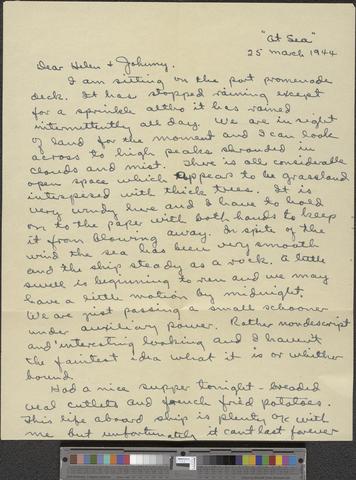 "At Sea"
25 March 1944
Dear Helen & Johnny.
I am sitting on the port promenade
deck. It has stopped raining except
for a sprinkle altho it has rained
intermittently all day. We are in sight
of land for the moment and I can look
across to high peaks shrouded in
clouds and mist. There is all considerable
open space which appears to be grassland
interspesed with thick trees. It is
very windy here and I have to hold
on to the paper with both hands to keep
it from blowing away. In spite of the
wind the sea has been very smooth
and the ship steady as a rock. A little
swell is beginning to run and we may
have a little motion by midnight.
We are just passing a small schooner
under auxiliary power. Rather nondescript
and interesting looking and I haven't
the faintest idea what it is or whither
bound.
Had a nice supper tonight - breaded
veal cutlets and french fried potatoes.
This life aboard ship is plenty ok with
me but unfortunately it can't last forever